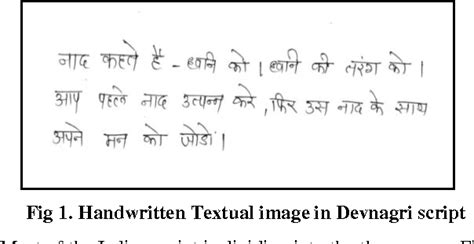 नाद कहते हैं - ध्वनि को । ध्वनि की तरंग को ।
आप पहले नाद उत्पन्न करे, फिर उस नाद के साथ
अपने मन को जोडो ।
Fig 1. Handwritten Textual image in Devnagri script